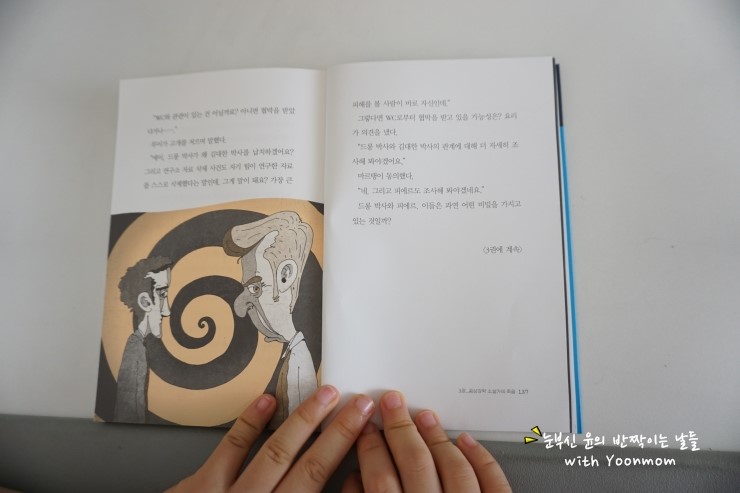 "WC와 관련이 있는 건 아닐까요? 아니면 협박을 받았
다거나……."
루이가 고개를 저으며 말했다.
"에이, 드롱 박사가 왜 김대한 박사를 납치하겠어요?
그리고 연구소 자료 삭제 사건도 자기 팀이 연구한 자료
를 스스로 삭제했다는 말인데, 그게 말이 돼요? 가장 큰
피해를 볼 사람이 바로 자신인데."
그렇다면 WC로부터 협박을 받고 있을 가능성은? 요리
가 의견을 냈다.
"드롱 박사와 김대한 박사의 관계에 대해 더 자세히 조
사해 봐야겠어요."
마르탱이 동의했다.
"네, 그리고 피에르도 조사해 봐야겠네요."
드롱 박사와 피에르, 이들은 과연 어떤 비밀을 가지고
있는 것일까?
<5권에 계속>
137
눈부신 윤의 반짝이는 날들
with Yoonmom